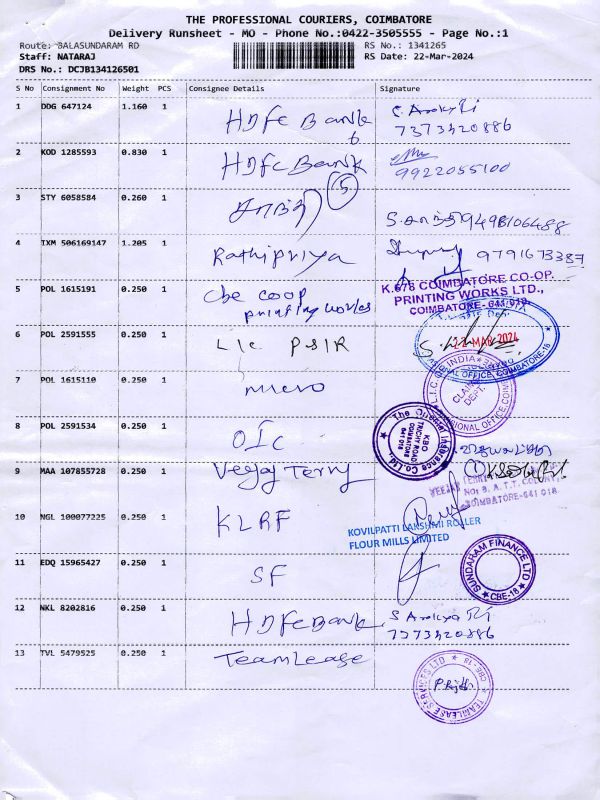 THE PROFESSIONAL COURIERS, COIMBATORE
Delivery Runsheet - MO - Phone No.:0422-3505555 - Page No.:1
Route: BALASUNDARAM RD
RS No.: 1341265
Staff: NATARAJ
RS Date: 22-Mar-2024
DRS No.: DCJB134126501
S No Consignment No Weight PCS Consignee Details Signature
1 DDG 647124 1.160 1 HDFC Bank
7373420886
2 KOD 1285593 0.830 1 HDFC Bank
9922055100
3 STY 6058584 0.260 1
5
9498106488
4 IXM 506169147 1.205 1 Rathipriya 9791673387
5 POL 1615191 0.250 1 Cbe coop
printing works
K.678 COIMBATORE CO-OP.
PRINTING WORKS LTD.,
COIMBATORE-641 018
6 POL 2591555 0.250 1 LIC P&IR
22 MAR 2024
7 POL 1615110 0.250 1 micro
CLAIMS
DEPT.
8 POL 2591534 0.250 1 OIC
The Oriental Insurance Co. Ltd.
KBO
TRICHY ROAD
COIMBATORE
641 018
9 MAA 107855728 0.250 1 Veejay Terry
COIMBATORE-641 018
10 NGL 100077225 0.250 1 KLRF
KOVILPATTI LAKSHMI ROLLER
FLOUR MILLS LIMITED
11 EDQ 15965427 0.250 1 SF
SUNDARAM FINANCE LTD
CBE-18
12 NKL 8202816 0.250 1 HDFC Bank
7373420886
13 TVL 5479525 0.250 1 TeamLease
TEAMLEASE SERVICES LTD
CBE-18